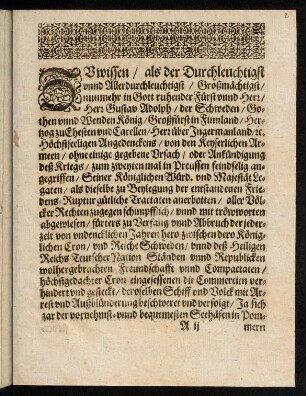 ZUwissen / als der Durchleuchtigst
vnnd Allerdurchleuchtigst / Großmächtigst /
nunmehr in Gott ruhender Fürst vnnd Herr /
Herr Gustav Adolph / der Schweden / Go-
then vnnd Wenden König / Großfürst in Finnland / Her-
tzog zu Ehesten vnd Carellen / Herr über Ingermanland / ec.
Höchstseeligen Angedenckens / von den Keyserlichen Ar-
meen / ohne einige gegebene Vrsach / oder Ankündigung
deß Kriegs / zum zweyten mal in Preussen feindselig an-
gegriffen / Seiner Königlichen Würd. vnd Majestät Le-
gaten / als dieselbe zu Beylegung der entstandenen Frie-
dens-Ruptur gütliche Tractaten anerbotten / aller Völ-
cker Rechten zugegen schimpfflich / vnnd mit tröwworten
abgewiesen / fürters zu Verfang vnnd Abbruch der jeder-
zeit von vndencklichen Jahren hero zwischen dero König-
lichen Cron / vnd Reiche Schweden / vnnd deß Heiligen
Reichs Teutscher Nation Ständen vnnd Republicken
wolhergebrachten Freundschafft vnnd Compactaten /
höchstgedachter Cron eingesessenen die Commercien ver-
hindert vnd gesteckt / deroselben Schiff vnd Volck mit Ar-
rest vnd Außblünderung beschweret vnd verfolgt / Ja sich
gar der vornehmst- vnnd bequemsten Seehäfen in Pom-
A ij mern